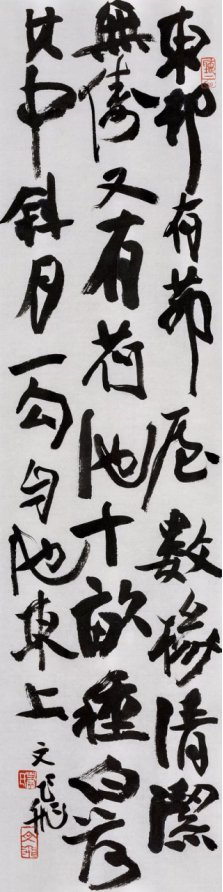 東邨有茆屋數椽清潔
無儔又有荷池十畝種白荷
其中斜月一勾勻池東上
文飛